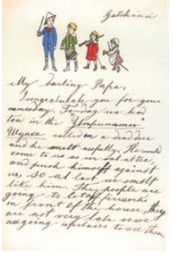 Gatchina
My darling Papa,
I congratulate you for your
namesday. To-day we had
tea in the
Wynka rolled in a
and he smelt awfully. He would
come to us as we sat at tea,
and push himself against
us, so at last we smelt
like him. The people are
going to let off fireworks
in front of the house, they
are not very late so we
are going upstairs to see them